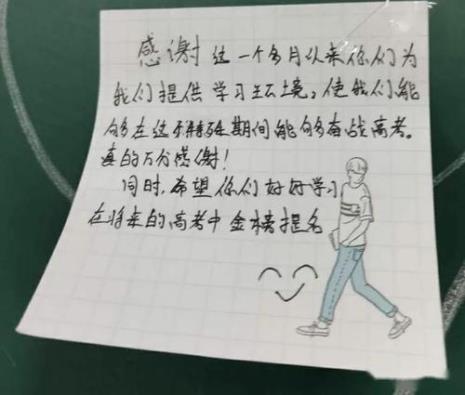 感谢这一个多月以来你们为
我们提供学习环境，使我们能
够在这不特殊期间能够奋战高考。
真的万分感谢！
同时，希望你们好好学习
在将来的高考中金榜提名